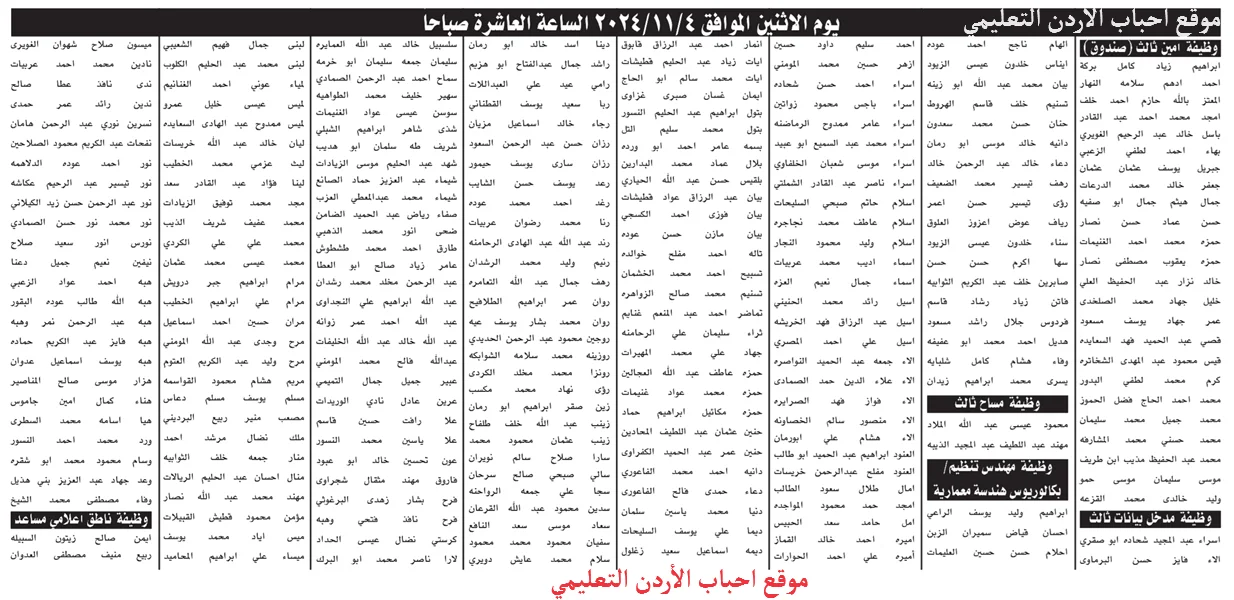 موقع احباب الأردن التعليمي
يوم الاثنين الموافق ٢٠٢٤/١١/٤ الساعة العاشرة صباحا
وظيفة امين ثالث (صندوق)
ابراهيم زياد كامل بركة
احمد ادهم سلامه النهار
المعتز بالله حازم احمد خلف
امجد محمد احمد عبد القادر
باسل خالد عبد الرحيم الغويري
بهاء احمد لطفي الزعبي
جبريل يوسف عثمان عثمان
جعفر خالد محمد الدرعات
جمال هيثم جمال ابو صفيه
حسن عماد حسن نصار
حمزه محمد احمد الغنيمات
حمزه يعقوب مصطفى نصار
خالد نزار عبد الحفيظ العلي
خليل جهاد محمد الصلخدى
عمر جهاد يوسف مسعود
قصي عبد الحميد فهد السعايده
قيس محمود عبد المهدى الشخاتره
كرم محمد لطفي البدور
محمد احمد الحاج فضل الحموز
محمد جميل محمد سليمان
محمد حسني محمد المشارفه
محمد عبد الحفيظ مذيب ابن طريف
موسى سليمان موسى حمو
وليد خالدى محمد القزعه
وظيفة مدخل بيانات ثالث
اسراء عبد المجيد شحاده ابو صقري
الاء فايز حسن البرماوى
الهام ناجح احمد عوده
ايناس خلدون عيسى الزيود
بيان محمد عبد الله ابو زينه
تسنيم خلف قاسم الهروط
حنان حسن محمد سعدون
دانيه خالد موسى ابو رمان
دعاء خالد عبد الرحمن خالد
رهف تيسير محمد الضعيف
رؤى تيسير حسن اعمر
رياف عوض اعزوز العلوق
سناء خلدون عيسى الزيود
سها اكرم حسن حسن
صابرين خلف عبد الكريم الثوابيه
فاتن زياد رشاد قاسم
فردوس جلال راشد مسعود
هديل احمد محمد ابو عفيفه
وفاء هشام كامل شلبايه
يسرى محمد ابراهيم زيدان
وظيفة مساح ثالث
محمود عيسى عبد الله الملاد
مهند عبد اللطيف عبد المجيد الذيبه
وظيفة مهندس تنظيم/
بكالوريوس هندسة معمارية
ابراهيم وليد يوسف الراعي
احسان فياض سميران الزبن
احلام حسن حسين العليمات
احمد سليم داود حسين
ازهر حسين محمد المومني
اسراء احمد حسن شحاده
اسراء باجس محمود زواتين
اسراء عامر ممدوح الرماضنه
اسراء محمد عبد السميع ابو عبيد
اسراء موسى شعبان الخلفاوي
اسراء ناصر عبد القادر الشملتي
اسلام حاتم صبحي السليحات
اسلام عاطف محمد نجاجره
اسلام وليد محمود النجار
اسماء اديب محمد عربيات
اسماء جمال نعيم العزه
اسيل رائد محمد الحنيني
اسيل عبد الرزاق فهد الخريشه
اسيل علي احمد المصري
الاء جمعه عبد الحميد النواصره
الاء علاء الدين حمد الصمادى
الاء فواز فهد الصرايره
الاء منصور سالم الخصاونه
الاء هشام علي ابورمان
العنود ابراهيم عبد الحميد ابو طالب
العنود مفلح عبدالرحمن خريسات
امال طلال سعود الطالب
امجد حمد محمود المواجده
امل حامد سعد الحبيس
اميره احمد خالد القماز
أميره علي احمد الحوارات
انمار احمد عبد الرزاق قابوق
ايات زياد عبد الحليم قطيشات
ايات محمد سالم ابو الحاج
ايمان غسان صبري غزاوى
بتول ابراهيم عبد الحليم النسور
بتول محمد سليم التل
بسمه عامر احمد ابو ورده
بلال عماد محمد البدارين
بلقيس حسن عبد الله الحيارى
بيان عبد الرزاق عواد قطيشات
بيان فوزى احمد الكسجي
بيان مازن حسن عوده
تاله احمد مفلح خوالده
تسبيح احمد محمد الخشمان
تسنيم محمد صالح الزواهره
تماضر احمد عبد المنعم غنايم
ثراء سليمان علي الرحامنه
جهاد علي محمد المهيرات
حمزه عاطف عبد الله العجالين
حمزه محمد عواد غنيمات
حمزه مكائيل ابراهيم حماد
حنين عثمان عبد اللطيف المحادين
حنين عمر عبد الحميد الكفراوى
دانيه احمد محمد الفاعوري
دعاء حمدى صالح الفاعوري
دنيا محمد ياسين سلمان
ديما علي يوسف السليحات
ديمه اسماعيل سعيد زغلول
دينا اسد خالد ابو رمان
راشد جمال عبدالفتاح ابو هزيم
رامي عيد علي العبداللات
ربا سعيد يوسف القطناني
رجاء خالد اسماعيل مزيان
رزان حسن عبد الرحمن السعود
رزان سارى يوسف حيمور
رعد يوسف حسن الشايب
رغد احمد محمد عوده
رنا محمد رضوان عربيات
رند عبد الله عبد الهادى الرحامنه
رنيم وليد محمد الرشدان
رهف جمال عبد الله التعامره
روان عمر ابراهيم الطلافيح
روان محمد بشار يوسف عيه
روجين محمود عبد الرحمن الحديدي
روزينه محمد سلامه الشوابكه
رونزا محمد مخلد الكردى
رؤى نهاد محمد مكسب
زين صقر ابراهيم ابو رمان
زينب عبد الله خلف طلفاح
زينب عثمان محمود محمد
سارا صلاح سالم نويران
سالي صبحي صالح سرحان
سجا علي جمعه الرواحنه
سدين محمود عبد الله القرعان
سعاد موسى سعد النافع
سفيان محمود محمد محمود
سلام محمد عايش دويري
سلسبيل خالد عبد الله العمايره
سليمان جمعه سليمان ابو خرمه
سماح احمد عبد الرحمن الصمادي
سهير خليف محمد الطواهيه
سوسن عيسى عواد الغنيمات
شذى شاهر ابراهيم الشبلي
شريف طه سلمان ابو هديب
شهد عبد الحليم موسى الزيادات
شيماء عبد العزيز حماد الصانع
شيماء محمد عبدالمعطي العزب
صفاء رياض عبد الحميد الضامن
ضحى انور محمد الذهبي
طارق احمد محمد طشطوش
عامر زياد صالح ابو العطا
عبد الرحمن مخلد محمد رشدان
عبد الله ابراهيم علي النجداوى
عبد الله احمد عمر زوانه
عبد الله خالد عبد الله الخليفات
عبدالله فالح محمد المومني
عبير جميل جمال التميمي
عرين عادل نادي الوريدات
علا رافت حسين قاسم
علا ياسين محمد النسور
عون تحسين خالد ابو عبود
فاروق مهند مثقال شجراوى
فرح بشار زهدى البرغوثي
فرح نافذ فتحي وهبه
كرستي نضال عيسى الحداد
لارا ناصر محمد ابو البرك
لبنى جمال فهيم الشعيبي
لبنى محمد عبد الحليم الكلوب
لمياء عوني احمد الغنانيم
لميس عيسى خليل عمرو
لميس ممدوح عبد الهادى السعايده
ليان خالد عبد الله خريسات
ليث عزمي محمد الخطيب
لينا فؤاد عبد القادر سعد
مجد محمد توفيق الزيادات
محمد عفيف شريف الذيب
محمد علي علي الكردي
محمد عيسى محمد عثمان
مرام ابراهيم جبر درويش
مرام علي ابراهيم الخطيب
مران حسين احمد اسماعيل
مرح وجدى عبد الله المومني
مرح وليد عبد الكريم العتوم
مريم هشام محمود القواسمه
مسلم يوسف مسلم دعاس
مصعب منير ربيع البرديني
ملك نضال مرشد احمد
منار جمعه خلف الثوابيه
منال احسان عبد الحليم الريالات
مهند محمد عبد الله نصار
مؤمن محمود قطيش القبيلات
ميس اياد محمد يوسف
ميساء علي ابراهيم المحاميد
ميسون صلاح شهوان الغويرى
نادين محمد احمد عربيات
ندى نافذ عطا صالح
ندين رائد عمر حمدى
نسرين نوري عبد الرحمن هامان
نفحات عبد الكريم محمود الصلاحين
نور احمد عوده الدلاهمه
نور تيسير عبد الرحيم عكاشه
نور عبد الرحمن حسن زيد الكيلاني
نور محمد نور حسن الصمادي
نورس انور سعيد صلاح
نيفين نعيم جميل دعنا
هبه احمد عواد الزعبي
هبة الله طالب عوده البقور
هبه عبد الرحمن نمر وهبه
هبه فايز عبد الكريم حماده
هبه يوسف اسماعيل عدوان
هزار موسى صالح المناصير
هناء كمال امين جاموس
هيا اسامه محمد السطرى
ورد محمد احمد النسور
وسام محمود محمد ابو شقره
وعد جهاد عبد العزيز بني هذيل
وفاء مصطفى محمد الشيخ
وظيفة ناطق اعلامي مساعد
ايمن صالح زيتون السبيله
ربيع منيف مصطفى العدوان
موقع احباب الأردن التعليمي